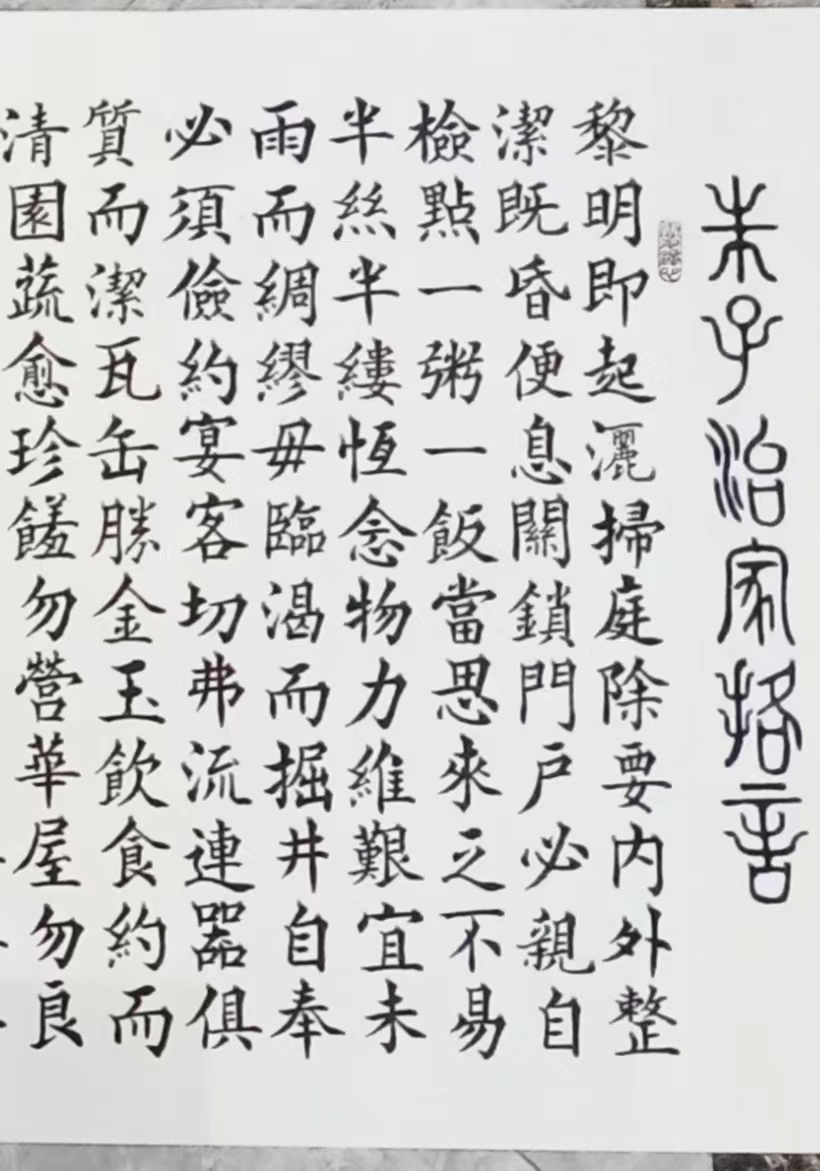 朱子治家格言
黎明即起灑掃庭除要内外整
潔既昏便息關鎖門戶必親自
檢點一粥一飯當思來之不易
半絲半縷恆念物力維艱宜未
雨而綢繆毋臨渴而掘井自奉
必須儉約宴客切弗流連器俱
質而潔瓦缶勝金玉飲食約而
清園蔬愈珍饈勿營華屋勿良